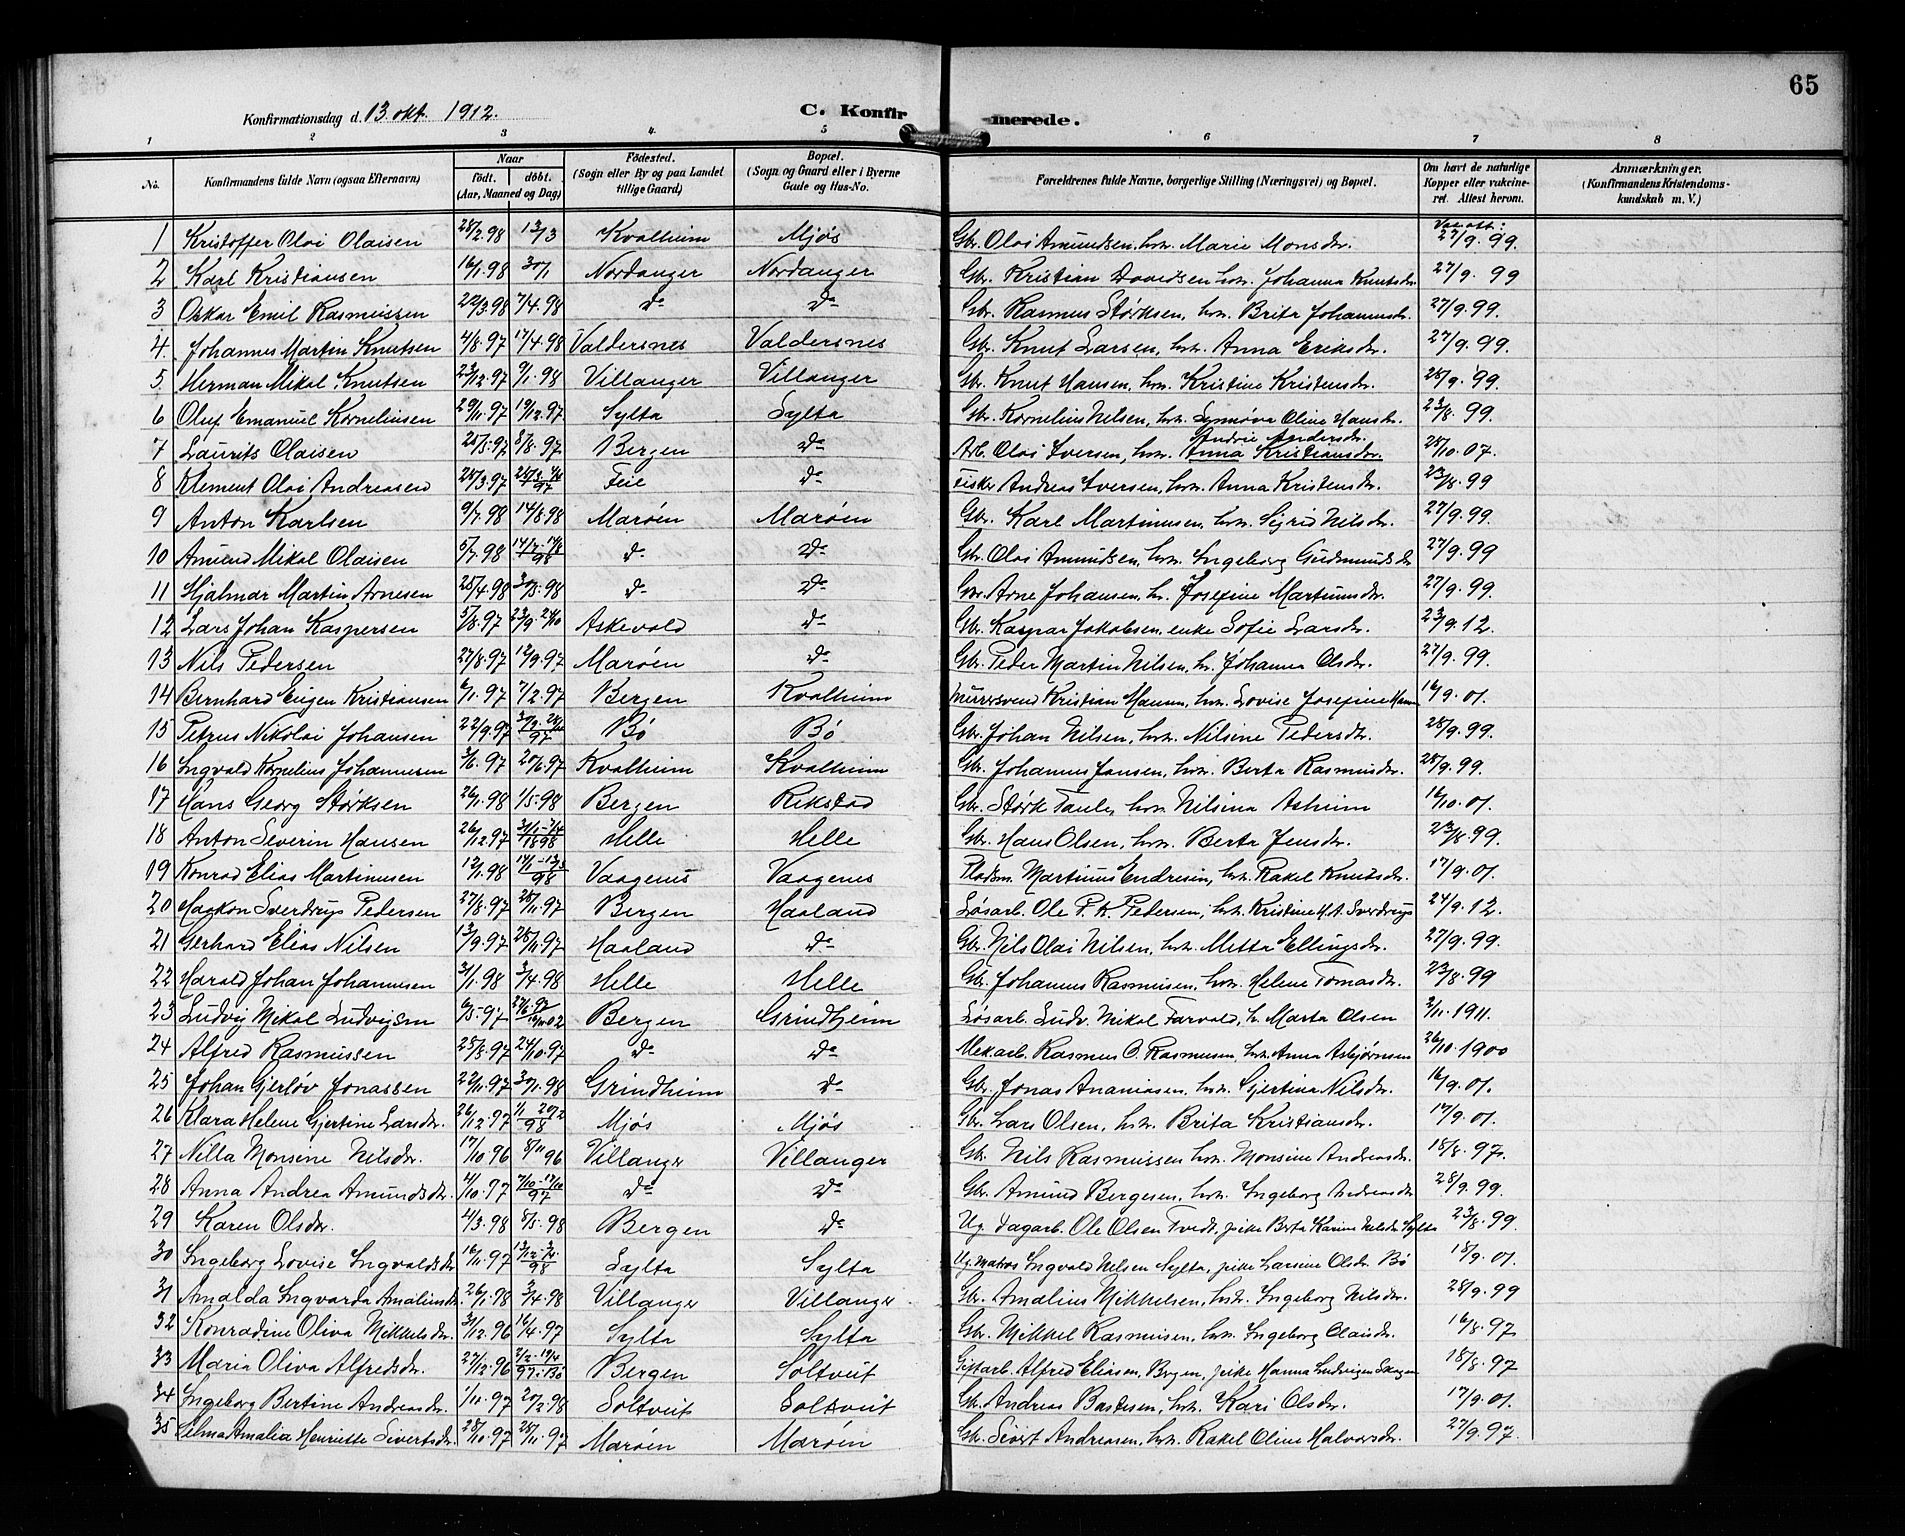 65
Konfirmationsdag d. 13. okt. 1912. C. Konfirmerede.
1 2 3 4 5 6 7 8
No. Konfirmandens fulde Navn (ogsaa Efternavn) Naar født. døbt. (Aar, Maaned og Dag) Fødested. (Sogn eller By og paa Landet tillige Gaard) Bopæl. (Sogn og Gaard eller i Byerne Gade og Hus-No. Forældrenes fulde Navne, borgerlige Stilling (Næringsvei) og Bopæl. Om havt de naturlige Kopper eller vakcineret. Attest herom. Anmærkninger. (Konfirmandens Kristendomskundskab m. V.)
1 Kristoffer Olai Olaisen 28/2.98 13/3 Kvalheim Mjøs Gbr. Olai Amundsen, hst. Marie Monsdr. Vac. att: 27/9.99.
2 Karl Kristiansen 16/1.98 30/1 Nordanger Nordanger Gbr. Kristian Davidsen hst. Johanna Knutsdr. 27/9.99
3 Oskar Emil Rasmussen 22/3.98 7/4.98 do do Gbr. Rasmus Størksen, hst. Brita Johannesdr. 27/9.99.
4. Johannes Martin Knutsen 4/8.97 17/4.98 Valdersnes Valdersnes Gbr. Knut Larsen, hst. Anna Eriksdr. 27/9.99.
5. Herman Mikal Knutsen 23/12.97 9/1.98 Villanger Villanger Gbr. Knut Hansen, hst. Kristine Kristensdr. 28/9.99.
6 Oluf Emanuel Korneliusen 20/11.97 19/12.97 Sylta Sylta Gbr. Kornelius Nilsen, hst. Synnøva Oline Hansdr. 23/8.99.
7 Laurits Olaisen 25/5.97 8/8.97 Bergen do Arb. Olai Iversen, hst. Andrie Andersdr. Anna Kristiansdr. 28/10.07.
8 Klement Olai Andreasen 25/3.97 Feie do Fisker Andreas Iversen, hst. Anna Kristensdr. 23/8.99
9 Anton Karlsen 9/7.98 14/8.98 Marøen Marøen Gbr. Karl Martinusen, hst. Sigrid Nilsdr. 27/9.99.
10 Amund Mikal Olaisen 5/7.98 14/7-14/8 98 do do Gbr. Olai Amundsen, hst. Ingeborg Gudmundsdr 27/9.99
11 Hjalmar Martin Arnesen 25/4.98 30/5.98 do do Gbr. Arne Johansen, h. Josefine Martinusdr. 27/9.99.
12 Lars Johan Kaspersen 5/8.97 23/9.24/10 Askevold do Gbr. Kaspar Jakobsen, enke Sofie Larsdr. 23/9.12.
13 Nils Pedersen 27/8.97 12/9.97 Marøen do Gbr. Peder Martin Nilsen, h. Johanna Olsdr. 27/9.99.
14 Bernhard Eugen Kristiansen 6/1.97 7/2.97 Bergen Kvalheim Murersvend Kristian Hansen, hst. Lovise Josefine 16/9.01.
15 Petrus Nikolai Johansen 22/9.97 Bø Bø Gbr. Johan Nilsen, hst. Nilsine Pedersdtr. 28/9.99.
16 Ingvald Kornelius Johannesen 3/6.97 20/6.97 Kvalheim Kvalheim Gbr. Johannes Jansen, hst. Berta Rasmusdr. 28/9.99.
17 Hans Georg Størksen 26/1.98 1/5.98 Bergen Rikstad Gbr. Størk Taule, hst. Nilsina Asheim 16/10.01.
18 Anton Severin Hansen 26/12.97 Helle Helle Gbr. Hans Olsen, hst. Berta Jensdr. 23/8.99.
19 Konrad Elias Martinusen 12/1.98 Vaagenes Vaagenes Pladsm. Martinus Endresen, hst. Rakel Knutsdr. 17/9.01.
20 Haakon Sverdrup Pedersen 27/8.97 28/11.97 Bergen Haaland Løsarb. Ole P. K. Pedersen, hst. Kristine M. A. Sverdrup 24/9.12.
21 Gerhard Elias Nilsen 13/9.97 28/11.97 Haaland do Gbr. Nils Olai Nilsen, hst. Metta Ellingsdr. 27/9.99.
22 Harald Johan Johannesen 31/1.98 3/4.98 Helle Helle Gbr. Johannes Rasmusen, hst. Helene Tomasdr. 23/8.99
23 Ludvig Mikal Ludvigsen 6/5.97 Bergen Grindheim Løsarb. Ludv. Mikal Farvold, h. Marta Olsen 2/11.1911.
24 Alfred Rasmussen 25/8.97 24/10.97 do do Mek.arb. Rasmus O. Rasmusen, hst. Anna Asbjørnsen 26/10.1900
25 Johan Gjerløv Jonassen 22/11.97 30/1.98 Grindheim do Gbr. Jonas Ananiasen, hst. Gjertina Nilsdr. 16/9.01.
26 Klara Helene Gjertine Larsdr. 26/12.97 1/1 20/2 98 Mjøs Mjøs Gbr. Lars Olsen, hst. Brita Kristiansdr. 17/9.01.
27 Nilla Monsine Nilsdr. 17/10.96 8/11 96 Villanger Villanger Gbr. Nils Rasmussen hst. Monsine Andreasdr. 18/8.97.
28 Anna Andrea Amundsdr. 4/10.97 do do Gbr. Amund Bergesen, hst. Ingeborg Andreasdr 28/9.99.
29 Karen Olsdr. 4/3.98 8/5.98 Bergen do Ug. dagarb. Ole Olsen Tvedt, pike Berta Karine Nilsdr Sylta 23/8.99.
30 Ingeborg Lovise Ingvaldsdr 16/11.97 Sylta Sylta Ug. matros Ingvald Nilsen Sylta, pike Larsine Olsdr. Bø 18/9.01.
31 Amalda Ingvarda Amaliusdr. 26/1.98 3/4.98 Villanger Villanger Gbr. Amalius Mikkelsen, hst. Ingeborg Nilsdr. 28/9.99
32 Konradine Oliva Mikkelsdr. 31/12.96 16/4.97 Sylta Sylta Gbr. Mikkel Rasmusen, hst. Ingeborg Olaisdr. 16/8.97
33 Maria Oliva Alfredsdr. 27/12.96 Bergen Soltveit Giftarb. Alfred Eliasen, Bergen, pike Hanna 18/8.97
34 Ingeborg Bertine Andreasdr. 1/11.97 20/2.98 Soltveit Soltveit Gbr. Andreas Bastesen, hst. Kari Olsdr. 17/9.01.
35 Selma Amalia Henriette Sivertsdr. 28/10.97 28/11.97 Marøen Marøen Gbr. Sivert Andreasen, hst. Rakel Oline Halvorsdr. 27/9.97.